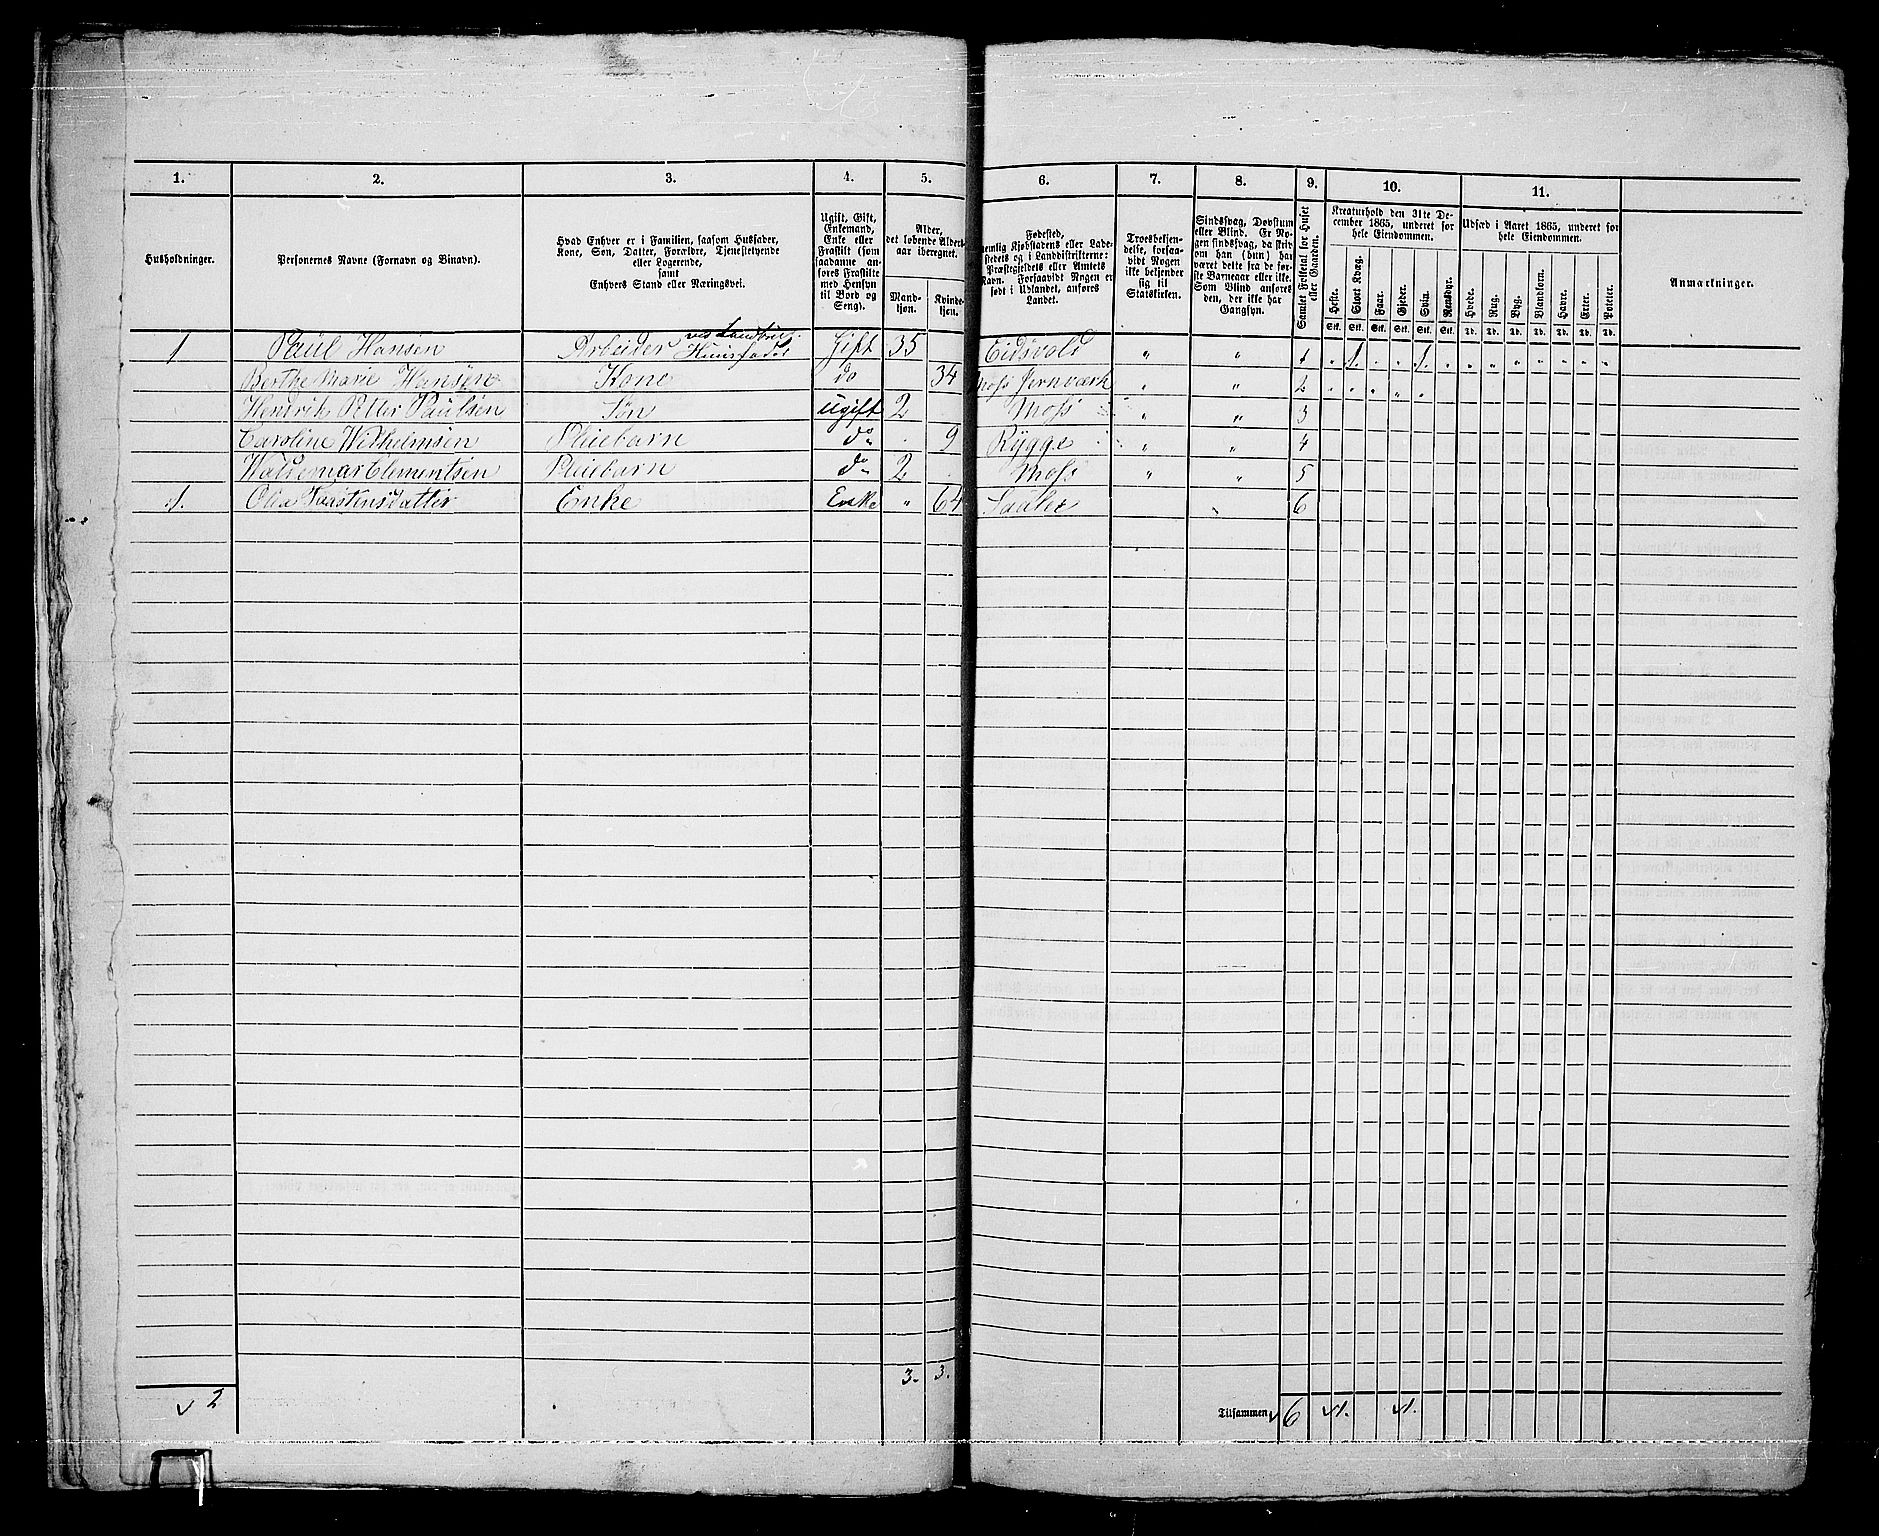 1. 2. 3. 4. 5. 6. 7. 8. 9. 10. 11.
Husholdninger.
Personernes Navne (Fornavn og Binavn).
Hvad Enhver er i Familien, saasom Husfader,
Kone, Søn, Datter, Forældre, Tjenestetyende
eller Logerende,
samt
Enhvers Stand eller Næringsvei.
Ugift, Gift,
Enkemand,
Enke eller
Fraskilt (som
saadanne an-
føres Fraskilte
med Hensyn
til Bord og
Seng).
Alder,
det løbende Alders-
aar iberegnet.
Mand-
kjøn.
Kvinde-
kjøn.
Fødested,
nemlig Kjøbstadens eller Lade-
stedets og i Landdistrikterne:
Præstegjeldets eller Amtets
Navn. Forsaavidt Nogen er
født i Udlandet, anføres
Landet.
Troesbekjen-
delse, forsaa-
vidt Nogen
ikke bekjender
sig til
Statskirken.
Sindssvag, Døvstum
eller Blind. Er No-
gen sindssvag, da skriv
om han (hun) har
været dette fra de før-
ste Barneaar eller ikke.
Som Blind anføres
den, der ikke har
Gangsyn.
Samlet Folketal for Huset
eller Gaarden.
Kreaturhold den 31te De-
cember 1865, underet for
hele Eiendommen.
Heste. Stort Kvæg. Faar. Gjeder. Sviin. Rensdyr.
Stk. Stk. Stk. Stk. Stk. Stk.
Udsæd i Aaret 1865, underet for
hele Eiendommen.
Hvede. Rug. Byg. Blandkorn. Havre. Erter. Poteter.
Td. Td. Td. Td. Td. Td. Td.
Anmærkninger.
1 Paul Hansen Arbeider ved Landbrug. Huusfader Gift 35 Eidsvold " " 1 " 1. . " 1. " " " " " " " "
Berthe Marie Hansen Kone do 34 Moss Jernværk " " 2
Hendrik Petter Paulsen Søn ugift 2 Moss " " 3
Caroline Wilhelmsen Pleiebarn do . 9 Rygge " " 4
Waldemar Clementsen Pleiebarn do 2 . Moss " " 5
1. Olea Torstensdatter Enke Enke " 64 Saaler " 6
3. 3.
2 Tilsammen 6 1. 1.